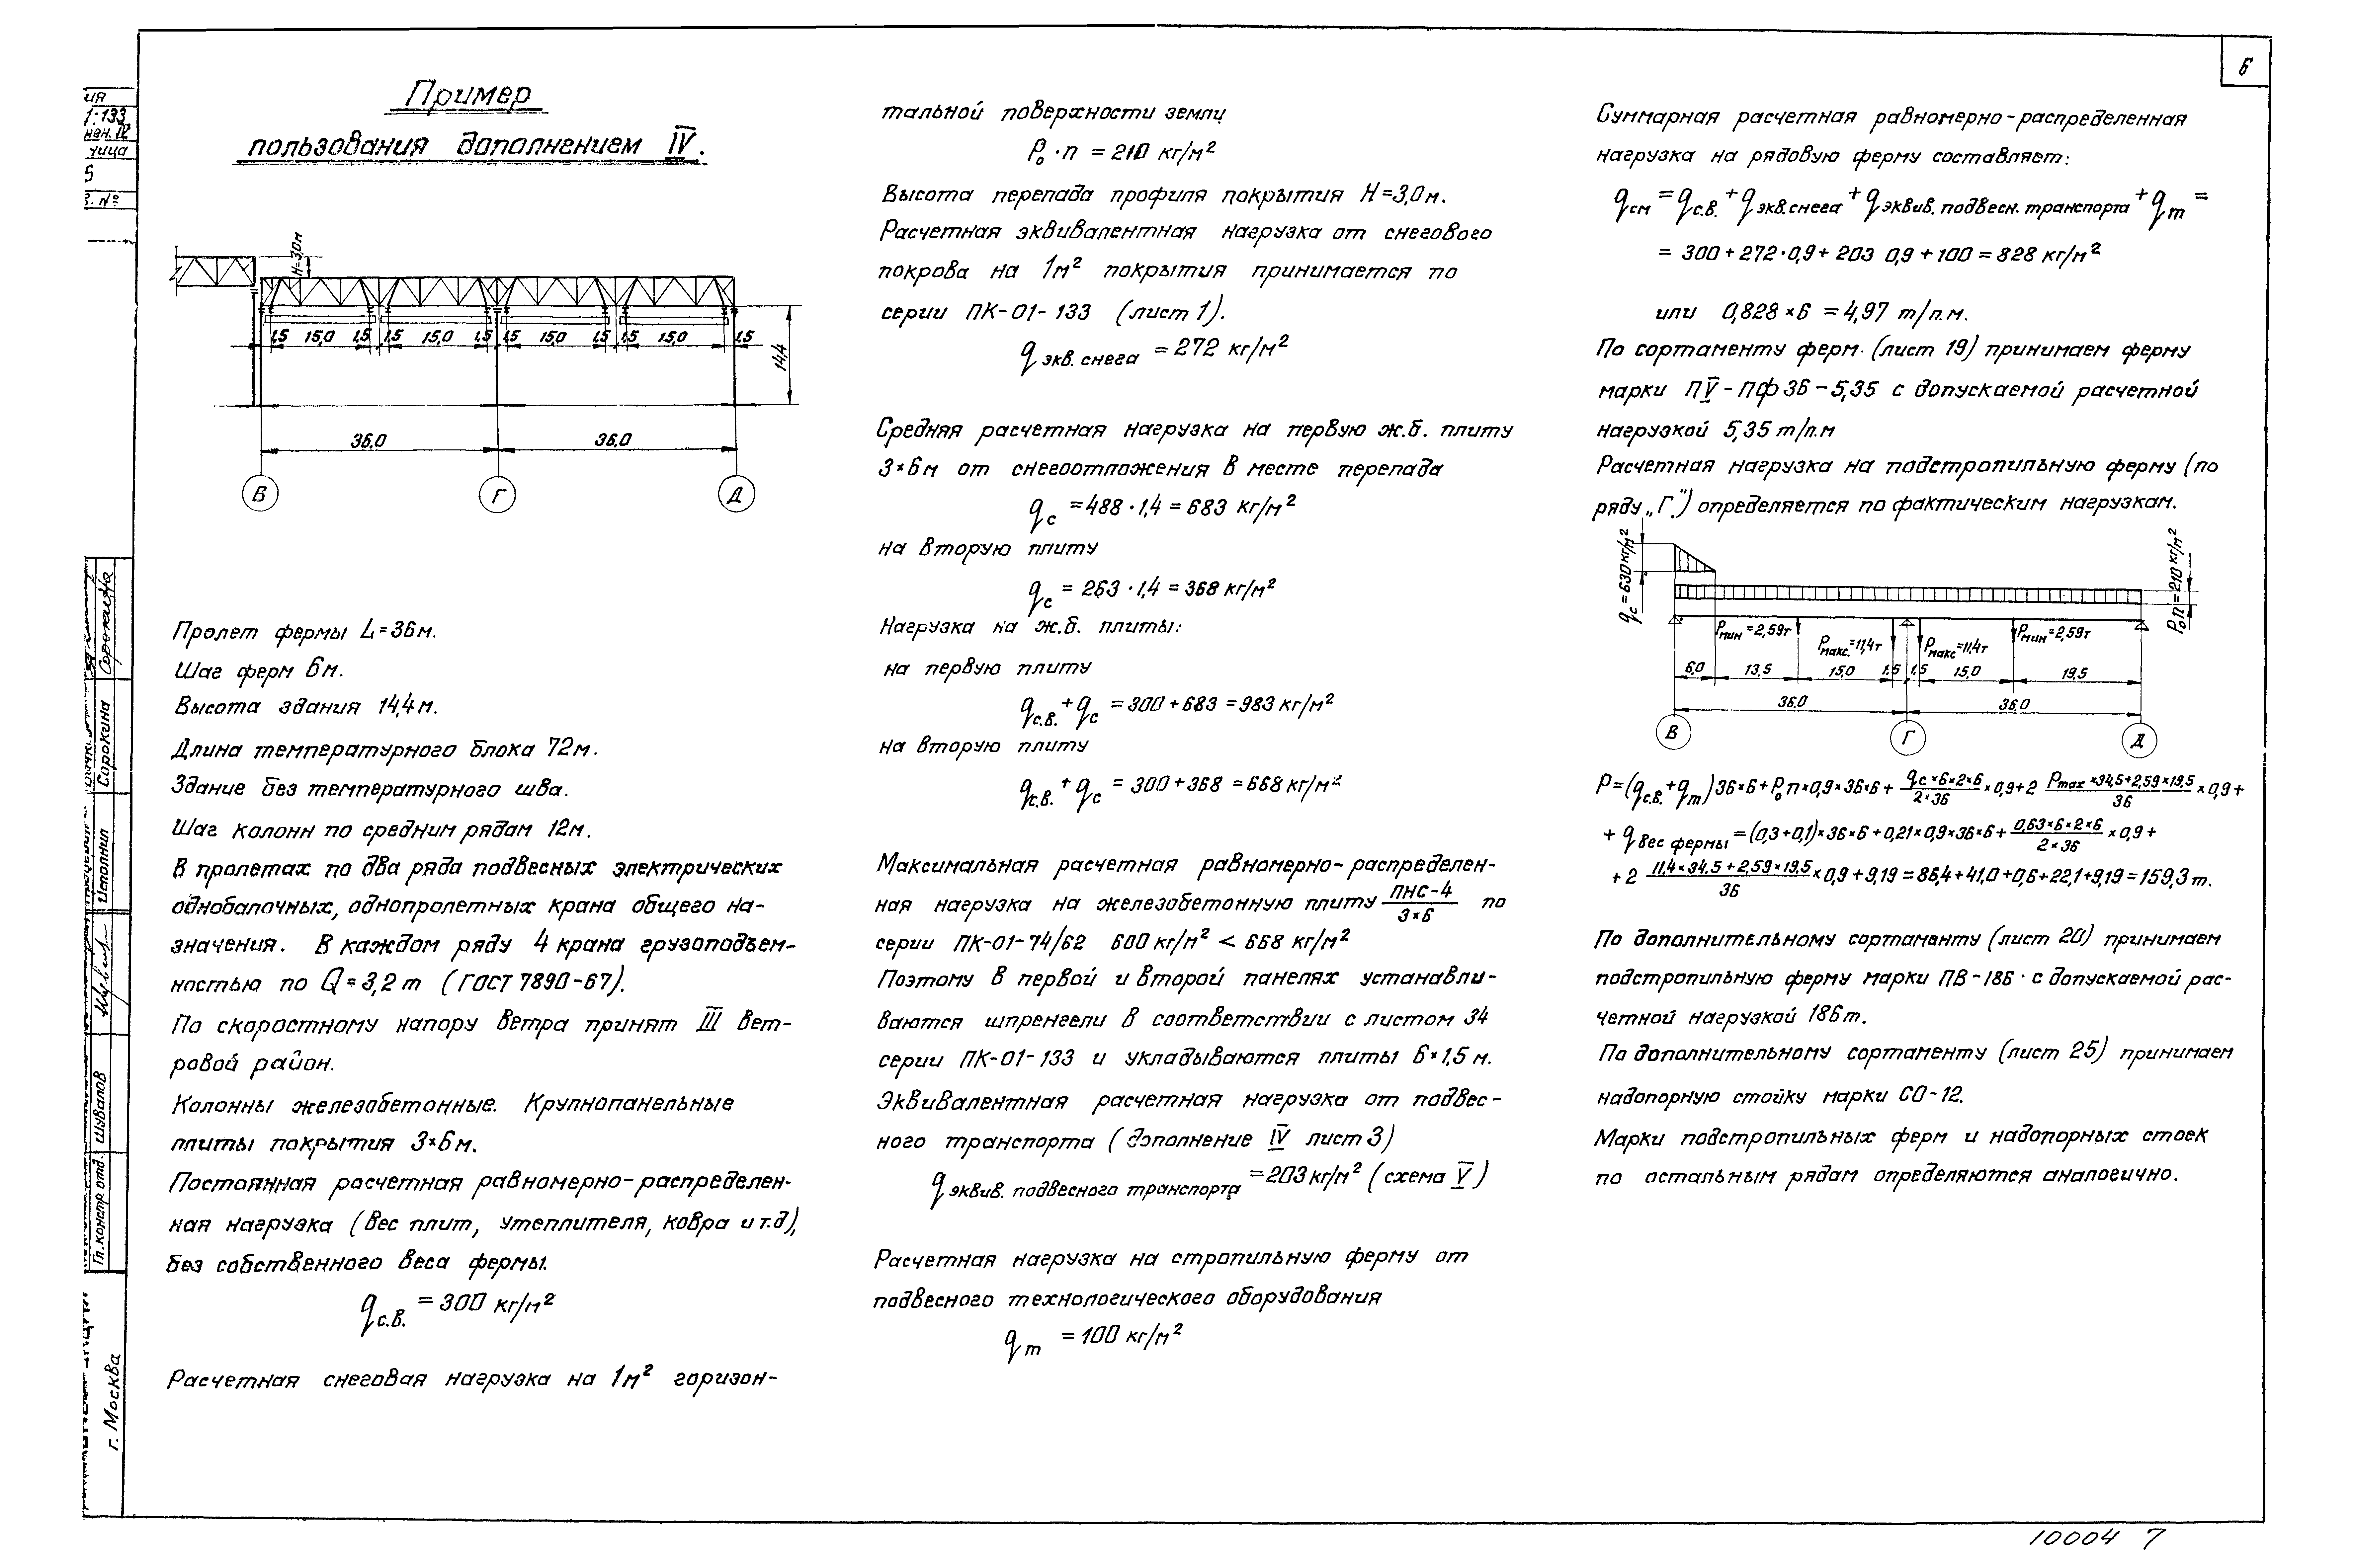 6
Пример
пользования дополнением IV.
ия
1:133
нан. IV
чица
5
В. №
H=3,0м
1,5 15,0 1,5 1,5 15,0 1,5 1,5 15,0 1,5 1,5 15,0 1,5
14,4
36,0 36,0
В Г Д
Пролет фермы L=36м.
Шаг ферм 6м.
Высота здания 14,4м.
Длина температурного блока 72м.
Здание без температурного шва.
Шаг колонн по средним рядам 12м.
В пролетах по два ряда подвесных электрических
однобалочных, однопролетных крана общего на-
значения. В каждом ряду 4 крана грузоподъем-
ностью по Q=3,2т (ГОСТ 7890-67).
По скоростному напору ветра принят III вет-
ровой район.
Колонны железобетонные. Крупнопанельные
плиты покрытия 3×6м.
Постоянная расчетная равномерно-распределен-
ная нагрузка (вес плит, утеплителя, ковра и т.д),
без собственного веса фермы.
qс.в. = 300 кг/м²
Расчетная снеговая нагрузка на 1м² горизон-
тальной поверхности земли
P₀·п = 210 кг/м²
Высота перепада профиля покрытия H=3,0м.
Расчетная эквивалентная нагрузка от снегового
покрова на 1м² покрытия принимается по
серии ПК-01-133 (лист 1).
q экв. снега = 272 кг/м²
Средняя расчетная нагрузка на первую ж.б. плиту
3×6м от снегоотложения в месте перепада
qс = 488·1,4 = 683 кг/м²
на вторую плиту
qс = 263·1,4 = 368 кг/м²
Нагрузка на ж.б. плиты:
на первую плиту
qс.в. + qс = 300+683 = 983 кг/м²
на вторую плиту
qс.в. + qс = 300+368 = 668 кг/м²
Максимальная расчетная равномерно-распределен-
ная нагрузка на железобетонную плиту ПНС-4/3×6 по
серии ПК-01-74/62 600 кг/м² < 668 кг/м²
Поэтому в первой и второй панелях устанавли-
ваются шпренгели в соответствии с листом 34
серии ПК-01-133 и укладываются плиты 6×1,5 м.
Эквивалентная расчетная нагрузка от подвес-
ного транспорта (дополнение IV лист 3)
q эквив. подвесного транспорта = 203 кг/м² (схема V)
Расчетная нагрузка на стропильную ферму от
подвесного технологического оборудования
qт = 100 кг/м²
Суммарная расчетная равномерно-распределенная
нагрузка на рядовую ферму составляет:
qсм = qс.в. + q экв.снега + q эквив. подвесн. транспорта + qт =
= 300+272·0,9+203 0,9+100=828 кг/м²
или 0,828×6 = 4,97 т/п.м.
По сортаменту ферм. (лист 19) принимаем ферму
марки ПV-ПФ36-5,35 с допускаемой расчетной
нагрузкой 5,35 т/п.м
Расчетная нагрузка на подстропильную ферму (по
ряду „Г.") определяется по фактическим нагрузкам.
qс=630кг/м²
P₀п=210кг/м²
Pмин=2,59т Pмакс.=11,4т Pмакс=11,4т Pмин=2,59т
6,0 13,5 15,0 1,5 1,5 15,0 19,5
36,0 36,0
В Г Д
P=(qс.в.+qт)36×6+P₀п×0,9×36×6+ qс×6×2×6/2×36 ×0,9+2 Pmax×34,5+2,59×19,5/36 ×0,9+
+ q вес фермы = (0,3+0,1)×36×6+0,21×0,9×36×6+ 0,63×6×2×6/2×36 ×0,9+
+2 11,4×34,5+2,59×19,5/36 ×0,9+9,19=86,4+41,0+0,6+22,1+9,19=159,3т.
По дополнительному сортаменту (лист 20) принимаем
подстропильную ферму марки ПВ-186 с допускаемой рас-
четной нагрузкой 186т.
По дополнительному сортаменту (лист 25) принимаем
надопорную стойку марки СО-12.
Марки подстропильных ферм и надопорных стоек
по остальным рядам определяются аналогично.
Сорокина
Исполнил
Шувалов
Гл. констр. отд.
г. Москва
10004 7